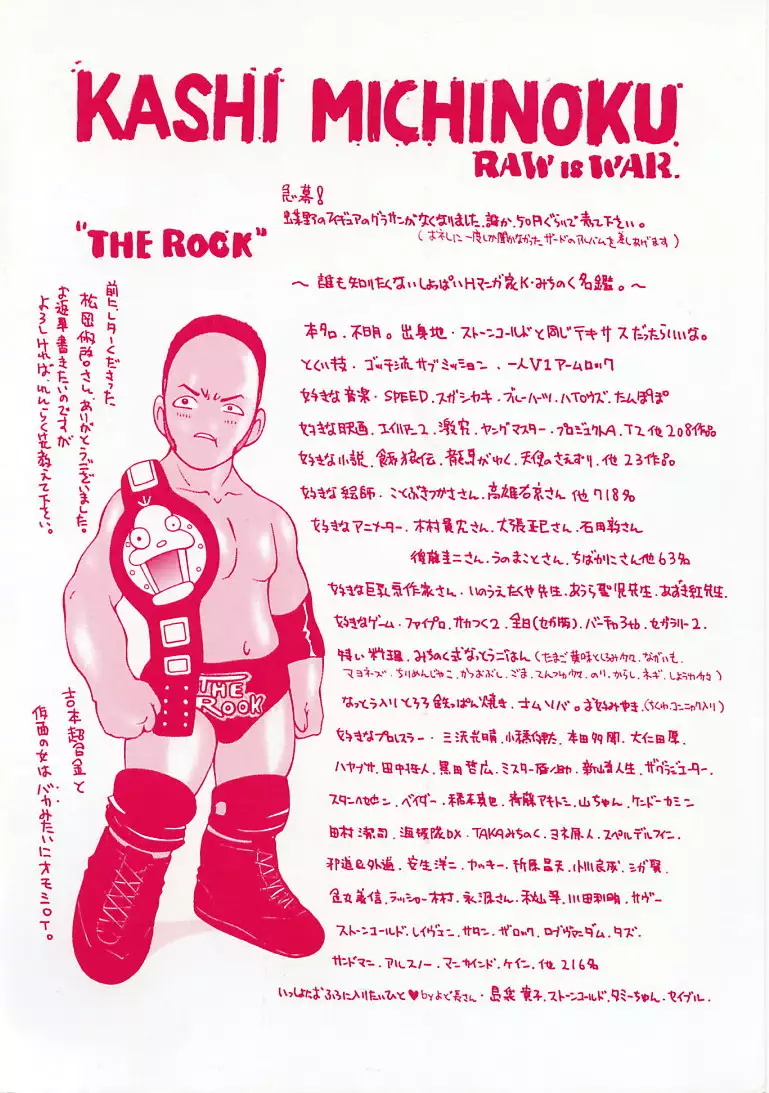 KASHI MICHINOKU
RAW IS WAR.
"THE ROCK"
急募!
のフィギュアのグラサンがなくなりました。誰か、50円ぐらいで売て下さい。
(お礼に一度しか聞かなかったザードのアルバムを差しあげます)
〜誰も知りたくないしょっぱいHマンガ家K・みちのく名鑑。〜
本名、不明。出身地・ストーンコールドと同じテキサスだったらいいな。
とくい技・ゴッチ流サブミッション、一人V1アームロック
好きな音楽・SPEED、スガシカオ、ブルーハーツ、ハイロウズ、たんぽぽ
好きな映画、エイリアン2、激突、ヤングマスター、プロジェクトA、T2他208作品
好きな小説、餓狼伝、龍馬がゆく、天使のさえずり、他23作品
好きな絵師・ことぶきつかささん、高雄右京さん他718名
好きなアニメーター、木村貴宏さん、大張正己さん、石田敦さん
後藤圭二さん、うのまことさん、ちばかにさん他63名
好きな巨乳系作家さん・いのうえたくや先生、あうら聖児先生、あずき紅先生、
好きなゲーム・ファイプロ、サカつく2、全日(セガ版)、バーチャ3tb、セガラリー2、
特い料理、みちのく式なっとうごはん(たまご黄味とくるみ ながいも、
マヨネーズ、ちりめんじゃこ、かつおぶし、ごま、てんつゆ のり、からし、ネギ、しょうゆ )
なっとう入りとろろ鉄っぱん焼き、オムソバ。お好みやき(ちくわ、コンニャク入り)
好きなプロレスラー・三沢光晴、小橋健太、本田多聞、大仁田厚、
ハヤブサ、田中将人、黒田哲広、ミスター雁之助、新山勝人生、ザグラジエーター、
スタンハンセン、ベイダー、橋本真也、斉藤アキトシ、山ちゃん、ケンドーカシン
田村潔司、海坂院DX、TAKAみちのく、ヨネ原人、スペルデルフィン、
邪道&外道、安生洋二、ヤッキー、折原昌夫、小川良成、シガ賢、
金丸義信、ラッシャー木村、永源さん、秋山準、川田利明、サブー
ストーンコールド、レイヴェン、サタン、ザロック、ロブヴァンダム、タズ、
サンドマン、アルスノー、マンカインド、ケイン、他216名
いっしょにおふろに入りたいひと♥byよど長さん・島袋寛子、ストーンコールド、タミーちゃん、セイブル、
前にレターくださった
松岡 さん、ありがとうございました。
お返事書きたいのですが
よろしければ、れんらく先教えて下さい。
吉本超合金と
仮面の女はバカみたいにオモシロイ。
THE ROCK